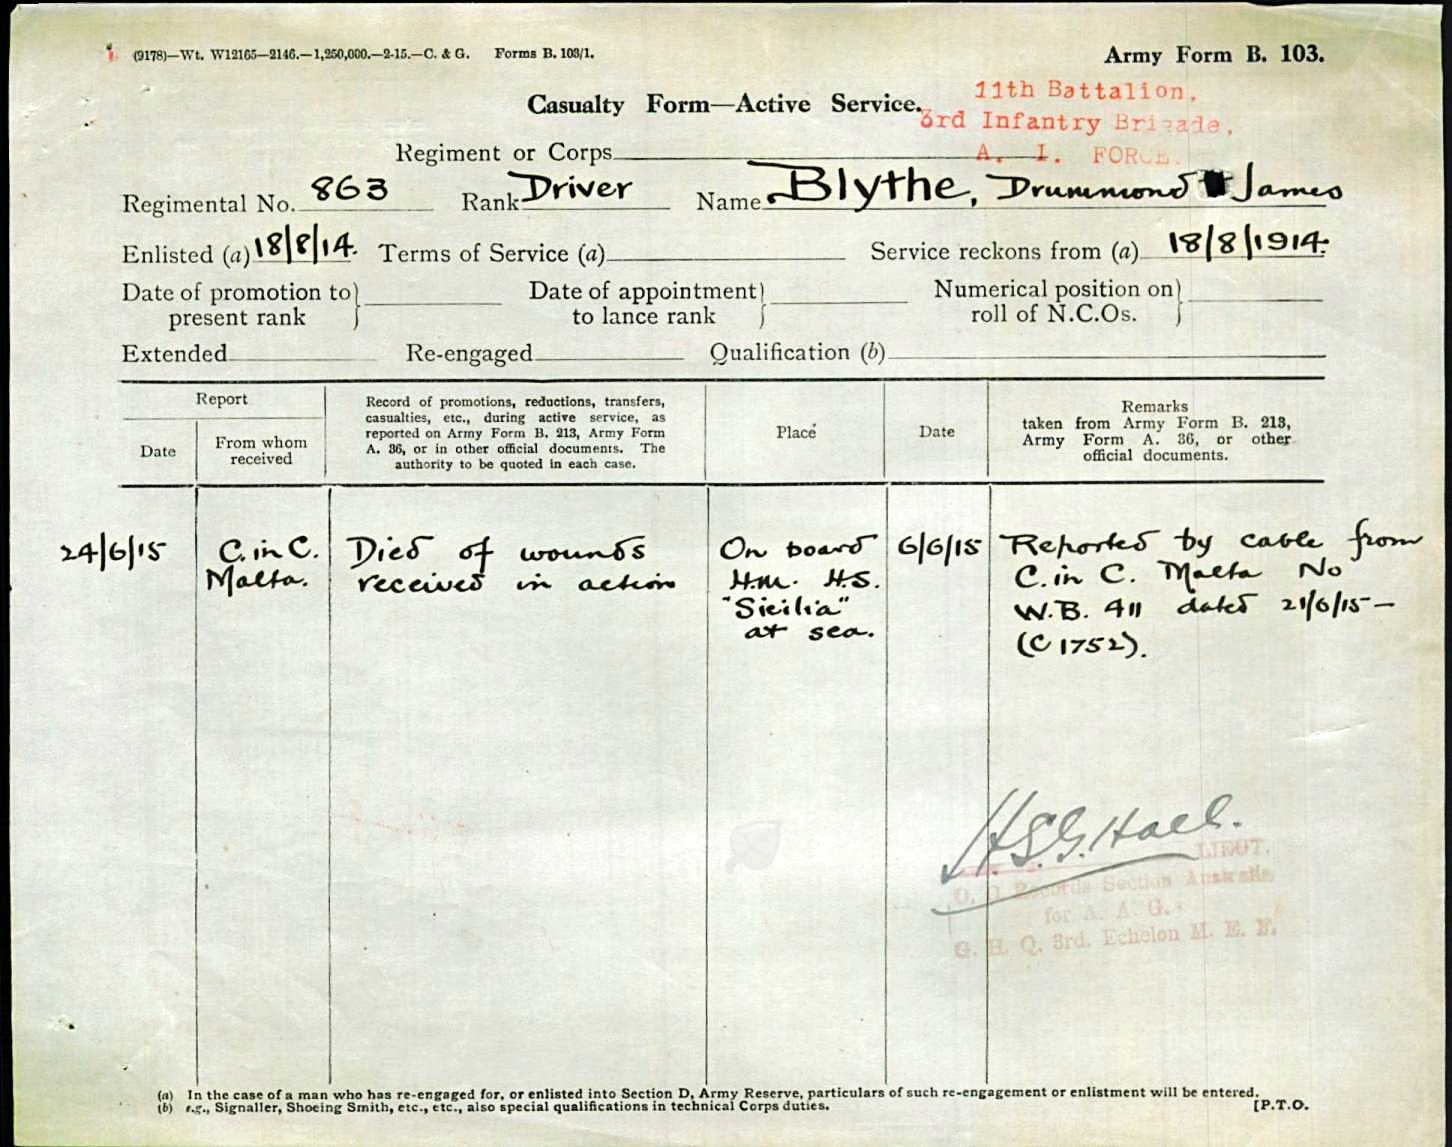 (9178)—Wt. W12165—2146.—1,250,000.—2-15.—C. & G. Forms B. 103/1.
Army Form B. 103.
Casualty Form—Active Service.
11th Battalion,
3rd Infantry Brigade,
A. I. FORCE.
Regiment or Corps
Regimental No. 863 Rank Driver Name Blythe, Drummond James
Enlisted (a) 18/8/14. Terms of Service (a) Service reckons from (a) 18/8/1914.
Date of promotion to } Date of appointment } Numerical position on }
present rank to lance rank roll of N.C.Os.
Extended Re-engaged Qualification (b)
Report
Date
From whom
received
Record of promotions, reductions, transfers,
casualties, etc., during active service, as
reported on Army Form B. 213, Army Form
A. 36, or in other official documents. The
authority to be quoted in each case.
Place
Date
Remarks
taken from Army Form B. 213,
Army Form A. 36, or other
official documents.
24/6/15
C. in C.
Malta.
Died of wounds
received in action
On board
H.M. H.S.
"Sicilia"
at sea.
6/6/15
Reported by cable from
C. in C. Malta No
W.B. 411 dated 21/6/15—
(C 1752).
H.S.G. Hall.
LIEUT.
Records Section Australia
for A. A. G.
G. H. Q. 3rd. Echelon M. E. F.
(a) In the case of a man who has re-engaged for, or enlisted into Section D, Army Reserve, particulars of such re-engagement or enlistment will be entered.
(b) e.g., Signaller, Shoeing Smith, etc., etc., also special qualifications in technical Corps duties.
[P.T.O.